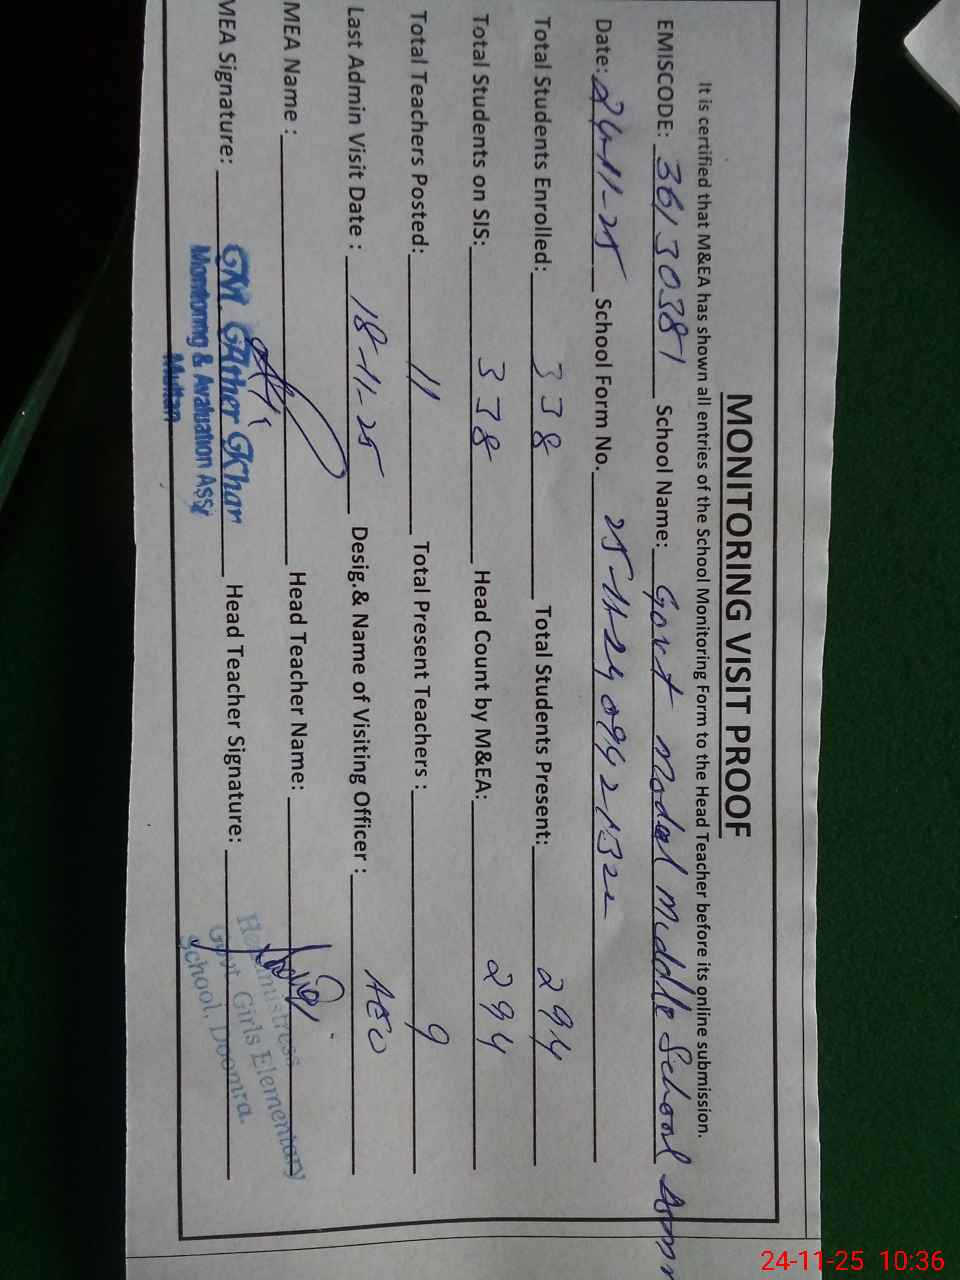 MONITORING VISIT PROOF
It is certified that M&EA has shown all entries of the School Monitoring Form to the Head Teacher before its online submission.
EMISCODE: 36130381 School Name: Govt Model Middle School
Date: 24-11-25 School Form No.
Total Students Enrolled: 338 Total Students Present: 294
Total Students on SIS: 338 Head Count by M&EA: 294
Total Teachers Posted: 11 Total Present Teachers : 9
Last Admin Visit Date : 18-11-25 Desig.& Name of Visiting Officer : AEO
MEA Name : Head Teacher Name:
MEA Signature: GM. Ather Khan Head Teacher Signature:
Monitoring & Avaluation Assi
Multan
Headmistress
Govt. Girls Elementary
School, Doomra.
24-11-25 10:36